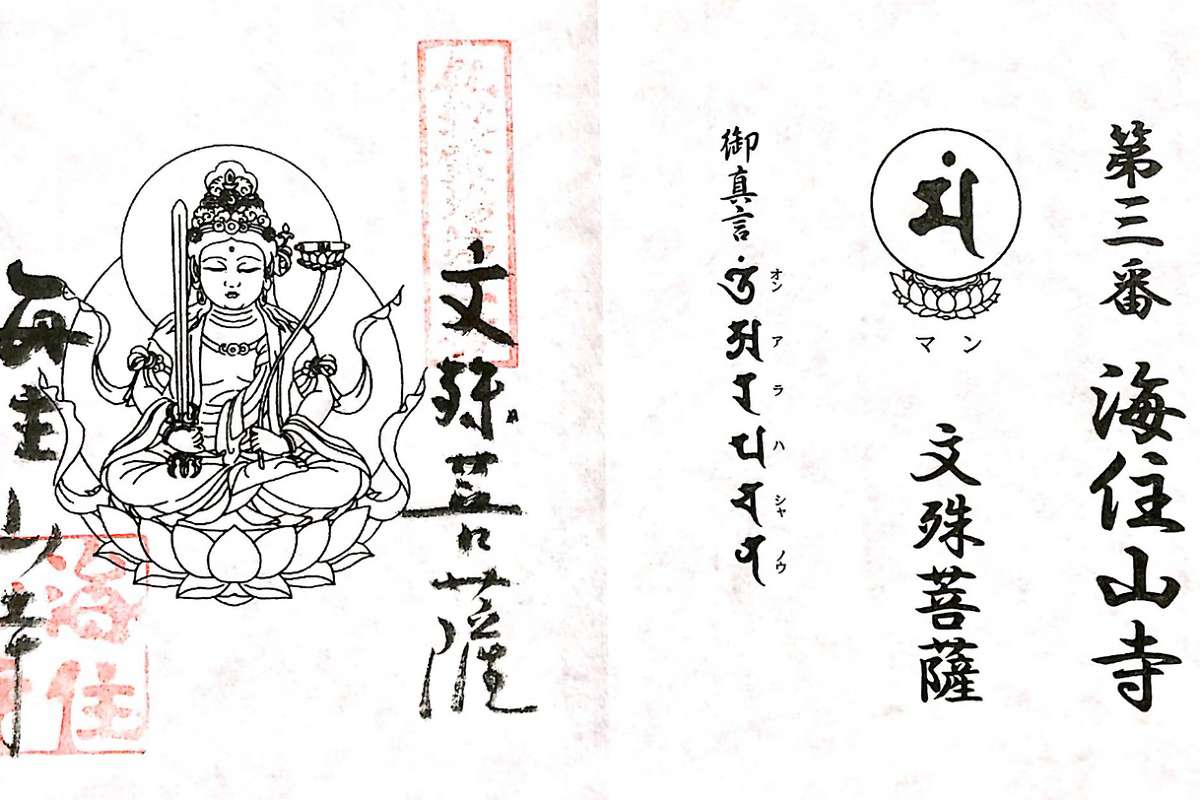 第三番 海住山寺
マン
文殊菩薩
御真言
オン ア ラ ハ シャ ノウ
文殊菩薩
海住山寺
海住